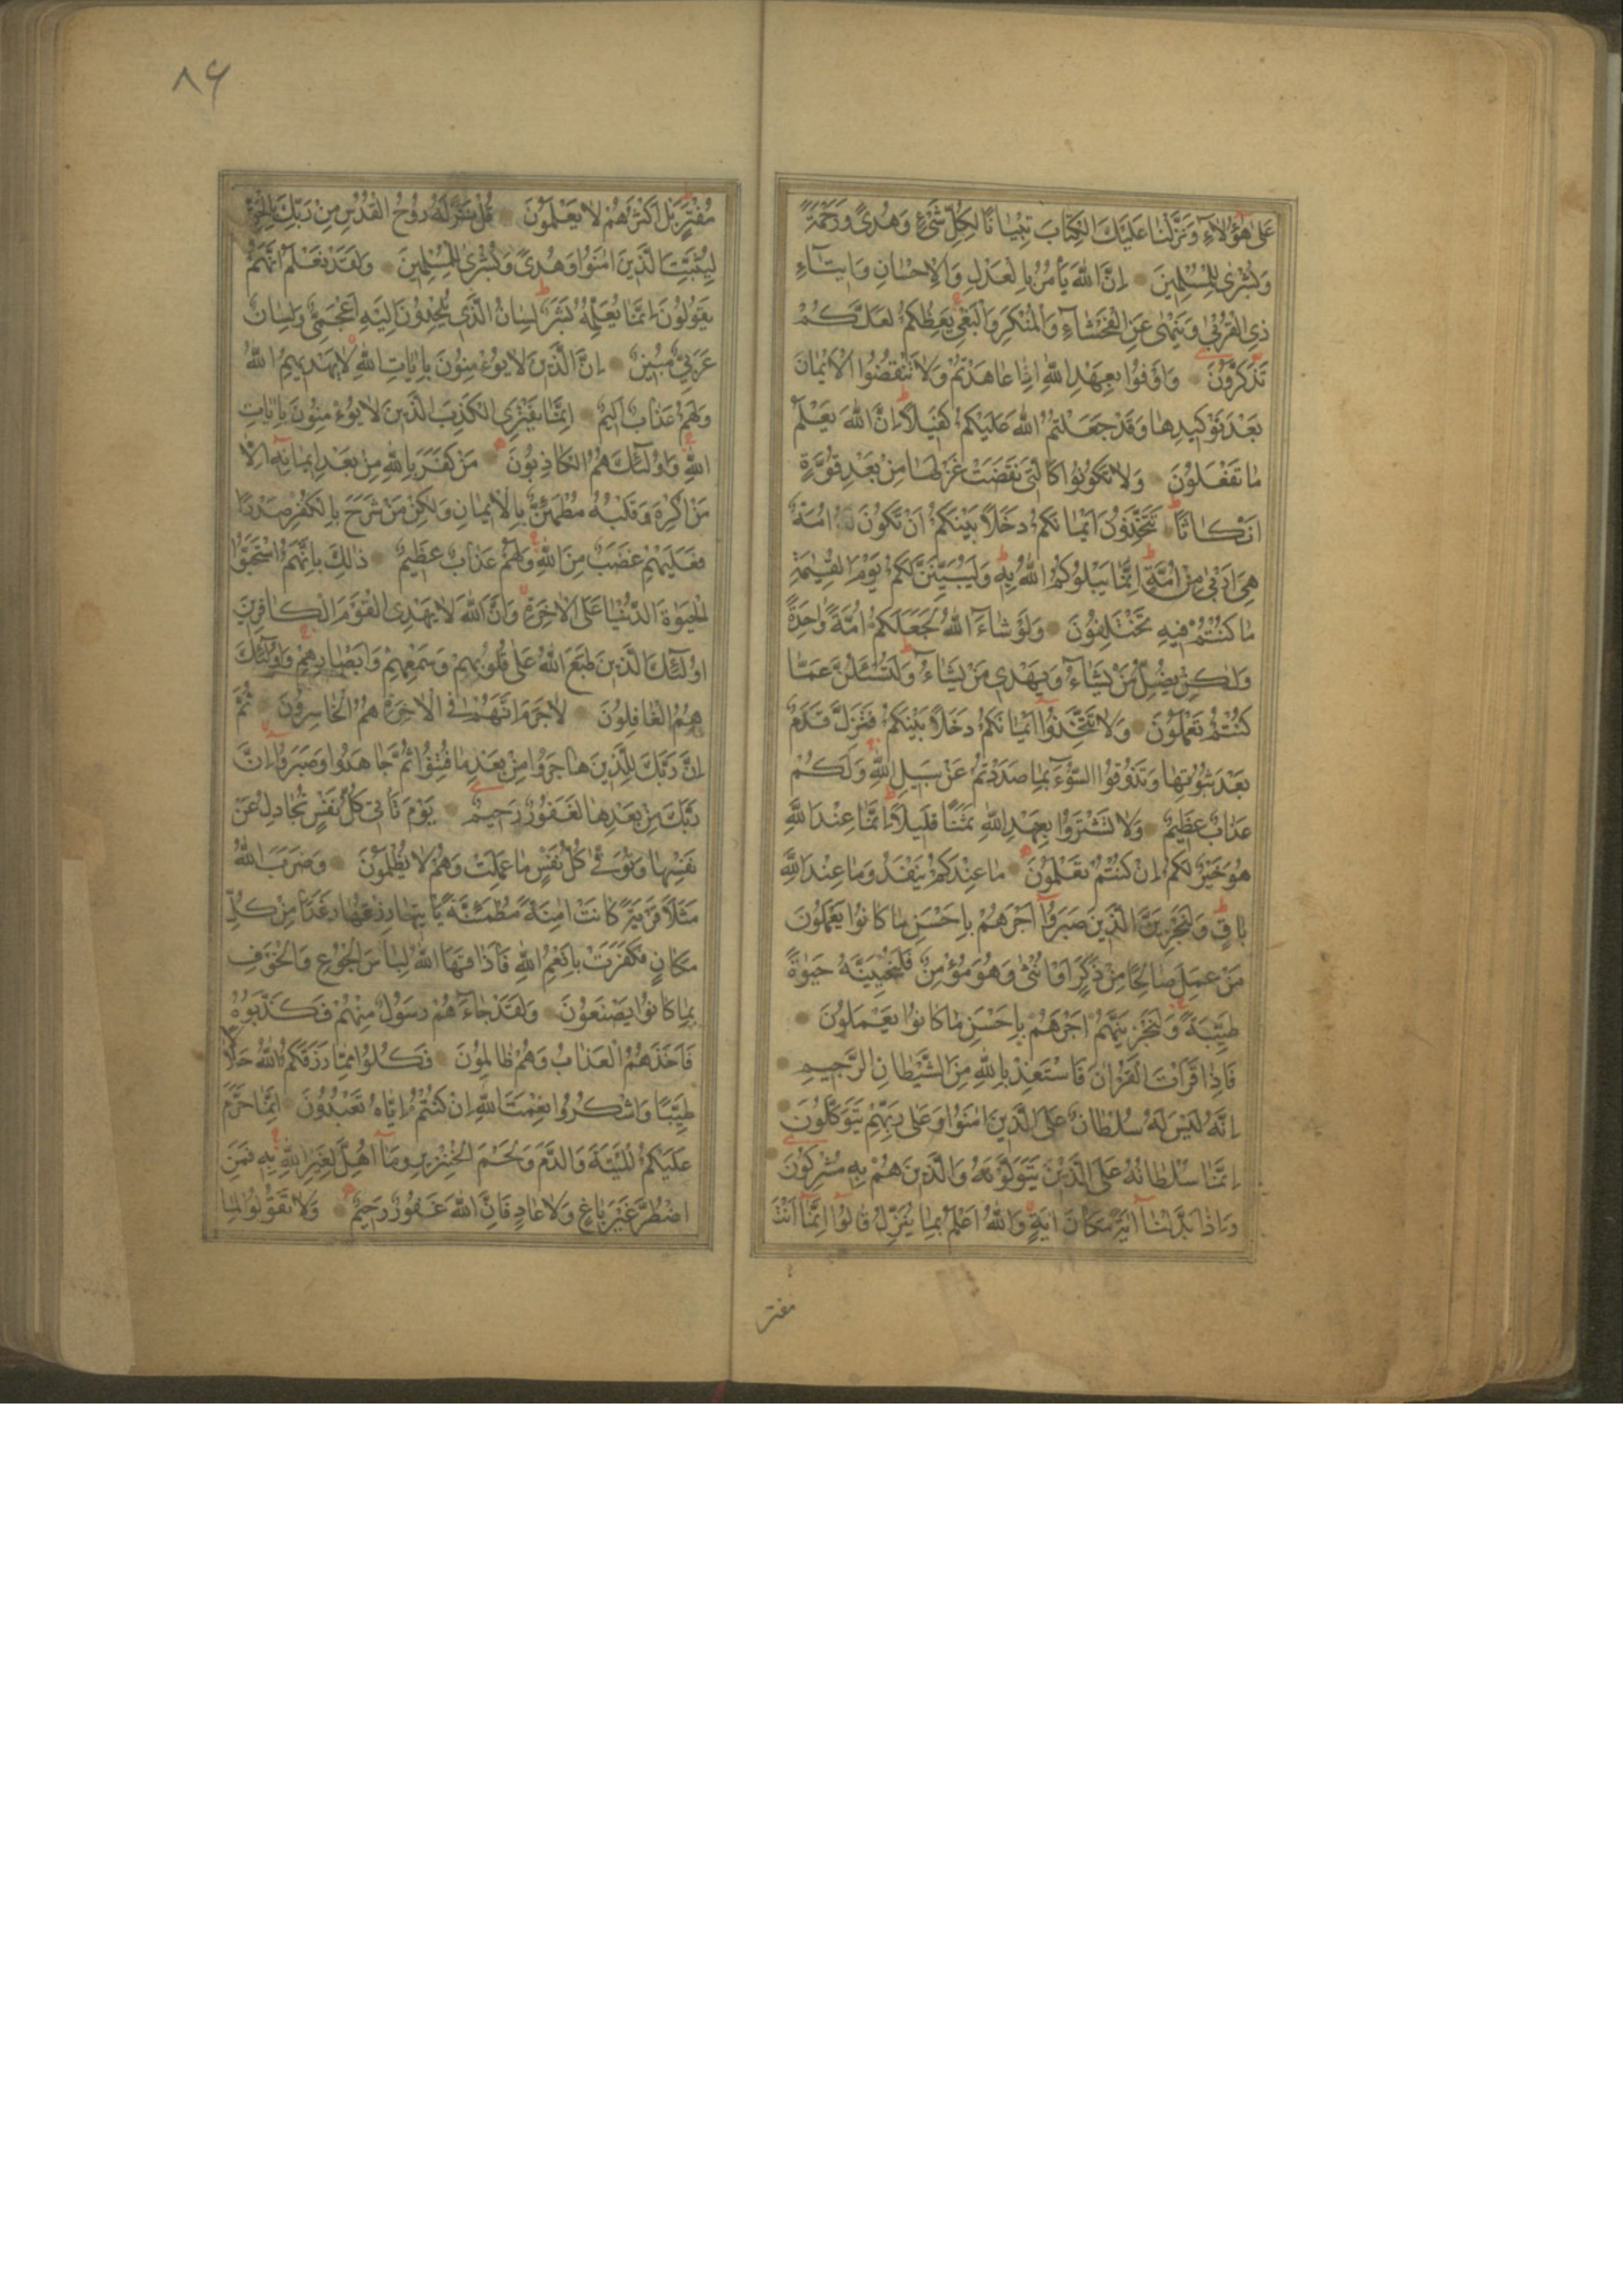 عَلٰى هٰؤُلَاءِ وَنَزَّلْنَا عَلَيْكَ الْكِتَابَ تِبْيَانًا لِكُلِّ شَيْءٍ وَهُدًى وَرَحْمَةً
وَبُشْرٰى لِلْمُسْلِمِينَ اِنَّ اللّٰهَ يَأْمُرُ بِالْعَدْلِ وَالْاِحْسَانِ وَاِيتَاءِ
ذِي الْقُرْبٰى وَيَنْهٰى عَنِ الْفَحْشَاءِ وَالْمُنْكَرِ وَالْبَغْيِ يَعِظُكُمْ لَعَلَّكُمْ
تَذَكَّرُونَ وَاَوْفُوا بِعَهْدِ اللّٰهِ اِذَا عَاهَدْتُمْ وَلَا تَنْقُضُوا الْاَيْمَانَ
بَعْدَ تَوْكِيدِهَا وَقَدْ جَعَلْتُمُ اللّٰهَ عَلَيْكُمْ كَفِيلًا اِنَّ اللّٰهَ يَعْلَمُ
مَا تَفْعَلُونَ وَلَا تَكُونُوا كَالَّتِي نَقَضَتْ غَزْلَهَا مِنْ بَعْدِ قُوَّةٍ
اَنْكَاثًا تَتَّخِذُونَ اَيْمَانَكُمْ دَخَلًا بَيْنَكُمْ اَنْ تَكُونَ اُمَّةٌ
هِيَ اَرْبٰى مِنْ اُمَّةٍ اِنَّمَا يَبْلُوكُمُ اللّٰهُ بِهِ وَلَيُبَيِّنَنَّ لَكُمْ يَوْمَ الْقِيٰمَةِ
مَا كُنْتُمْ فِيهِ تَخْتَلِفُونَ وَلَوْ شَاءَ اللّٰهُ لَجَعَلَكُمْ اُمَّةً وَاحِدَةً
وَلٰكِنْ يُضِلُّ مَنْ يَشَاءُ وَيَهْدِي مَنْ يَشَاءُ وَلَتُسْئَلُنَّ عَمَّا
كُنْتُمْ تَعْمَلُونَ وَلَا تَتَّخِذُوا اَيْمَانَكُمْ دَخَلًا بَيْنَكُمْ فَتَزِلَّ قَدَمٌ
بَعْدَ ثُبُوتِهَا وَتَذُوقُوا السُّوءَ بِمَا صَدَدْتُمْ عَنْ سَبِيلِ اللّٰهِ وَلَكُمْ
عَذَابٌ عَظِيمٌ وَلَا تَشْتَرُوا بِعَهْدِ اللّٰهِ ثَمَنًا قَلِيلًا اِنَّمَا عِنْدَ اللّٰهِ
هُوَ خَيْرٌ لَكُمْ اِنْ كُنْتُمْ تَعْلَمُونَ مَا عِنْدَكُمْ يَنْفَدُ وَمَا عِنْدَ اللّٰهِ
بَاقٍ وَلَنَجْزِيَنَّ الَّذِينَ صَبَرُوا اَجْرَهُمْ بِاَحْسَنِ مَا كَانُوا يَعْمَلُونَ
مَنْ عَمِلَ صَالِحًا مِنْ ذَكَرٍ اَوْ اُنْثٰى وَهُوَ مُؤْمِنٌ فَلَنُحْيِيَنَّهُ حَيٰوةً
طَيِّبَةً وَلَنَجْزِيَنَّهُمْ اَجْرَهُمْ بِاَحْسَنِ مَا كَانُوا يَعْمَلُونَ
فَاِذَا قَرَاْتَ الْقُرْاٰنَ فَاسْتَعِذْ بِاللّٰهِ مِنَ الشَّيْطَانِ الرَّجِيمِ
اِنَّهُ لَيْسَ لَهُ سُلْطَانٌ عَلَى الَّذِينَ اٰمَنُوا وَعَلٰى رَبِّهِمْ يَتَوَكَّلُونَ
اِنَّمَا سُلْطَانُهُ عَلَى الَّذِينَ يَتَوَلَّوْنَهُ وَالَّذِينَ هُمْ بِهِ مُشْرِكُونَ
وَاِذَا بَدَّلْنَا اٰيَةً مَكَانَ اٰيَةٍ وَاللّٰهُ اَعْلَمُ بِمَا يُنَزِّلُ قَالُوا اِنَّمَا اَنْتَ
مفتر
٨٦
مُفْتَرٍ بَلْ اَكْثَرُهُمْ لَا يَعْلَمُونَ قُلْ نَزَّلَهُ رُوحُ الْقُدُسِ مِنْ رَبِّكَ بِالْحَقِّ
لِيُثَبِّتَ الَّذِينَ اٰمَنُوا وَهُدًى وَبُشْرٰى لِلْمُسْلِمِينَ وَلَقَدْ نَعْلَمُ اَنَّهُمْ
يَقُولُونَ اِنَّمَا يُعَلِّمُهُ بَشَرٌ لِسَانُ الَّذِي يُلْحِدُونَ اِلَيْهِ اَعْجَمِيٌّ وَلِسَانٌ
عَرَبِيٌّ مُبِينٌ اِنَّ الَّذِينَ لَا يُؤْمِنُونَ بِاٰيَاتِ اللّٰهِ لَا يَهْدِيهِمُ اللّٰهُ
وَلَهُمْ عَذَابٌ اَلِيمٌ اِنَّمَا يَفْتَرِي الْكَذِبَ الَّذِينَ لَا يُؤْمِنُونَ بِاٰيَاتِ
اللّٰهِ وَاُولٰئِكَ هُمُ الْكَاذِبُونَ مَنْ كَفَرَ بِاللّٰهِ مِنْ بَعْدِ اِيمَانِهِ اِلَّا
مَنْ اُكْرِهَ وَقَلْبُهُ مُطْمَئِنٌّ بِالْاِيمَانِ وَلٰكِنْ مَنْ شَرَحَ بِالْكُفْرِ صَدْرًا
فَعَلَيْهِمْ غَضَبٌ مِنَ اللّٰهِ وَلَهُمْ عَذَابٌ عَظِيمٌ ذٰلِكَ بِاَنَّهُمُ اسْتَحَبُّوا
الْحَيٰوةَ الدُّنْيَا عَلَى الْاٰخِرَةِ وَاَنَّ اللّٰهَ لَا يَهْدِي الْقَوْمَ الْكَافِرِينَ
اُولٰئِكَ الَّذِينَ طَبَعَ اللّٰهُ عَلٰى قُلُوبِهِمْ وَسَمْعِهِمْ وَاَبْصَارِهِمْ وَاُولٰئِكَ
هُمُ الْغَافِلُونَ لَا جَرَمَ اَنَّهُمْ فِي الْاٰخِرَةِ هُمُ الْخَاسِرُونَ ثُمَّ
اِنَّ رَبَّكَ لِلَّذِينَ هَاجَرُوا مِنْ بَعْدِ مَا فُتِنُوا ثُمَّ جَاهَدُوا وَصَبَرُوا اِنَّ
رَبَّكَ مِنْ بَعْدِهَا لَغَفُورٌ رَحِيمٌ يَوْمَ تَاْتِي كُلُّ نَفْسٍ تُجَادِلُ عَنْ
نَفْسِهَا وَتُوَفّٰى كُلُّ نَفْسٍ مَا عَمِلَتْ وَهُمْ لَا يُظْلَمُونَ وَضَرَبَ اللّٰهُ
مَثَلًا قَرْيَةً كَانَتْ اٰمِنَةً مُطْمَئِنَّةً يَاْتِيهَا رِزْقُهَا رَغَدًا مِنْ كُلِّ
مَكَانٍ فَكَفَرَتْ بِاَنْعُمِ اللّٰهِ فَاَذَاقَهَا اللّٰهُ لِبَاسَ الْجُوعِ وَالْخَوْفِ
بِمَا كَانُوا يَصْنَعُونَ وَلَقَدْ جَاءَهُمْ رَسُولٌ مِنْهُمْ فَكَذَّبُوهُ
فَاَخَذَهُمُ الْعَذَابُ وَهُمْ ظَالِمُونَ فَكُلُوا مِمَّا رَزَقَكُمُ اللّٰهُ حَلَالًا
طَيِّبًا وَاشْكُرُوا نِعْمَتَ اللّٰهِ اِنْ كُنْتُمْ اِيَّاهُ تَعْبُدُونَ اِنَّمَا حَرَّمَ
عَلَيْكُمُ الْمَيْتَةَ وَالدَّمَ وَلَحْمَ الْخِنْزِيرِ وَمَا اُهِلَّ لِغَيْرِ اللّٰهِ بِهِ فَمَنِ
اضْطُرَّ غَيْرَ بَاغٍ وَلَا عَادٍ فَاِنَّ اللّٰهَ غَفُورٌ رَحِيمٌ وَلَا تَقُولُوا لِمَا